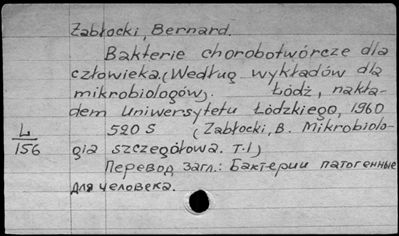 Zabłocki, Bernard.
Bakterie chorobotwórcze dla
człowieka. (Według wykładów dla
mikrobiologów). Łódź, nakła-
dem Uniwersytetu Łódzkiego, 1960
L/156
520 S (Zabłocki, B. Mikrobiolo-
gia szczegółowa. T.I)
Перевод загл.: Бактерии патогенные
для человека.